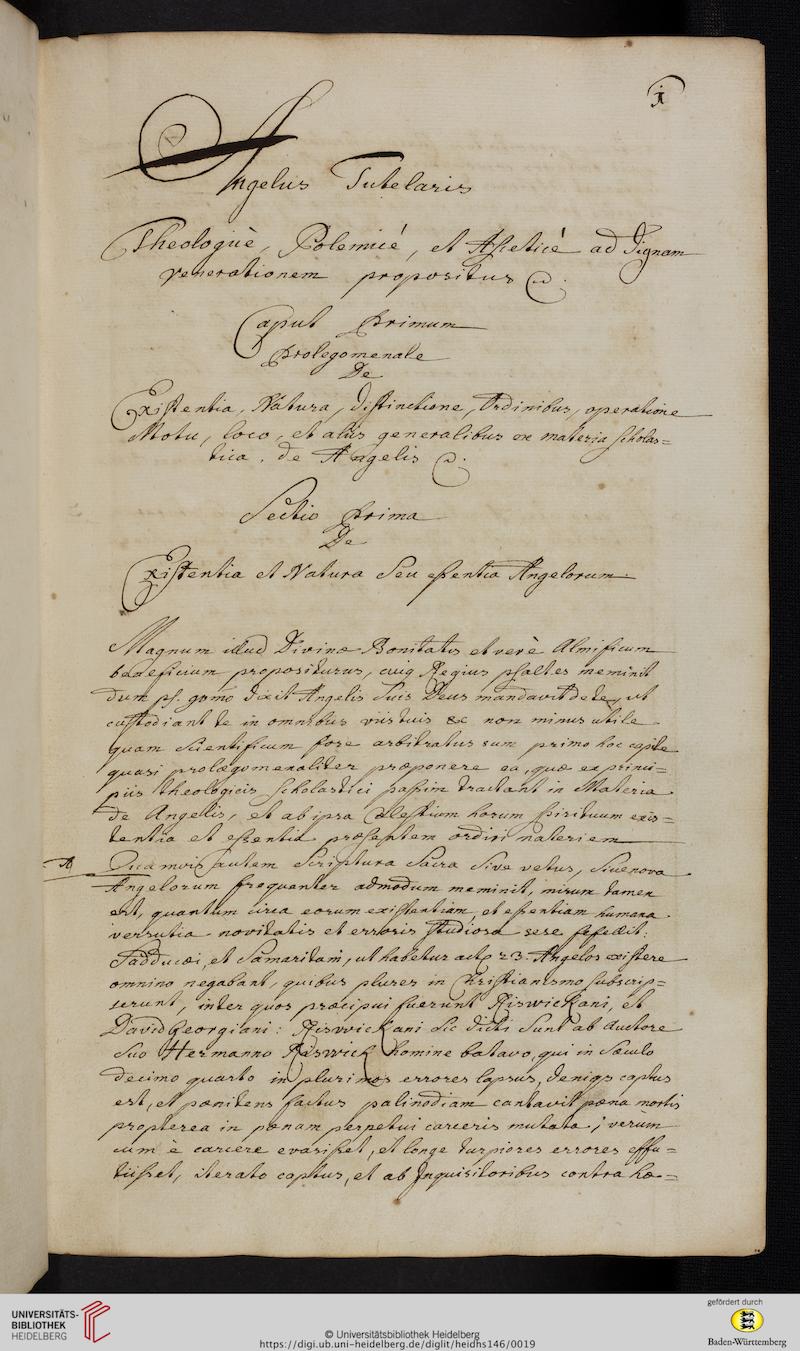 1
Angelus Tutelaris
Theologicè, Polemicé, et Asceticé ad dignam
venerationem propositus
Caput Primum
Prolegomenale
De
Existentia, Natura, distinctione, Ordinibus, operatione
Motu, loco, et aliis generalibus ex materia scholas=
tica de Angelis
Sectio Prima
De
Existentia et Natura seu essentia Angelorum
Magnum illud Divinæ Bonitatis et verè Almificum
beneficium propositurus, cuiq Regius psaltes meminit
dum ps. 90mo dixit Angelis suis Deus mandavit de te, ut
custodiant te in omnibus viis tuis &c non minus utile
quam scientificum fore arbitratus sum primo hoc capite
quasi prolægomenaliter præponere ea, quæ ex princi=
piis theologicis scholastici passim tractant in Materia
de Angelis, et ab ipsa cælestium horum spirituum exis=
tentia et essentia præsentem ordiri materiem
A Quamvis autem Scriptura Sacra sive vetus, sive nova
Angelorum frequenter admodum meminit, mirum tamen
est, quantum circa eorum existentiam, et essentiam humana
versutia novitatis et erroris studiosa sese
Sadducæi, et Samaritani, ut habetur act. 23. Angelos existere
omnino negabant, quibus plures in Christianismo subscrip=
serunt, inter quos præcipui fuerunt Riswickani, et
David Georgiani: Riswickani sic dicti sunt ab Auctore
suo Hermanno Riswick homine batavo, qui in sæculo
decimo quarto in plurimos errores lapsus, deniqs captus
est, et pœnitens factus palinodiam cantavit pœna mortis
propterea in pœnam perpetui carceris mutata; verùm
cum è carcere evasisset, et longe turpiores errores effu=
tiisset, iterato captus, et ab Inquisitoribus contra hæ=
UNIVERSITÄTS-
BIBLIOTHEK
HEIDELBERG
© Universitätsbibliothek Heidelberg
https://digi.ub.uni-heidelberg.de/diglit/heidhs146/0019
gefördert durch
Baden-Württemberg